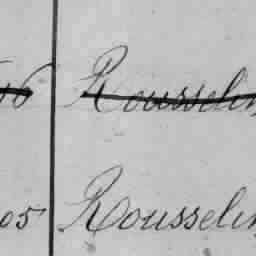 16 Rousselin
05 Rousselin